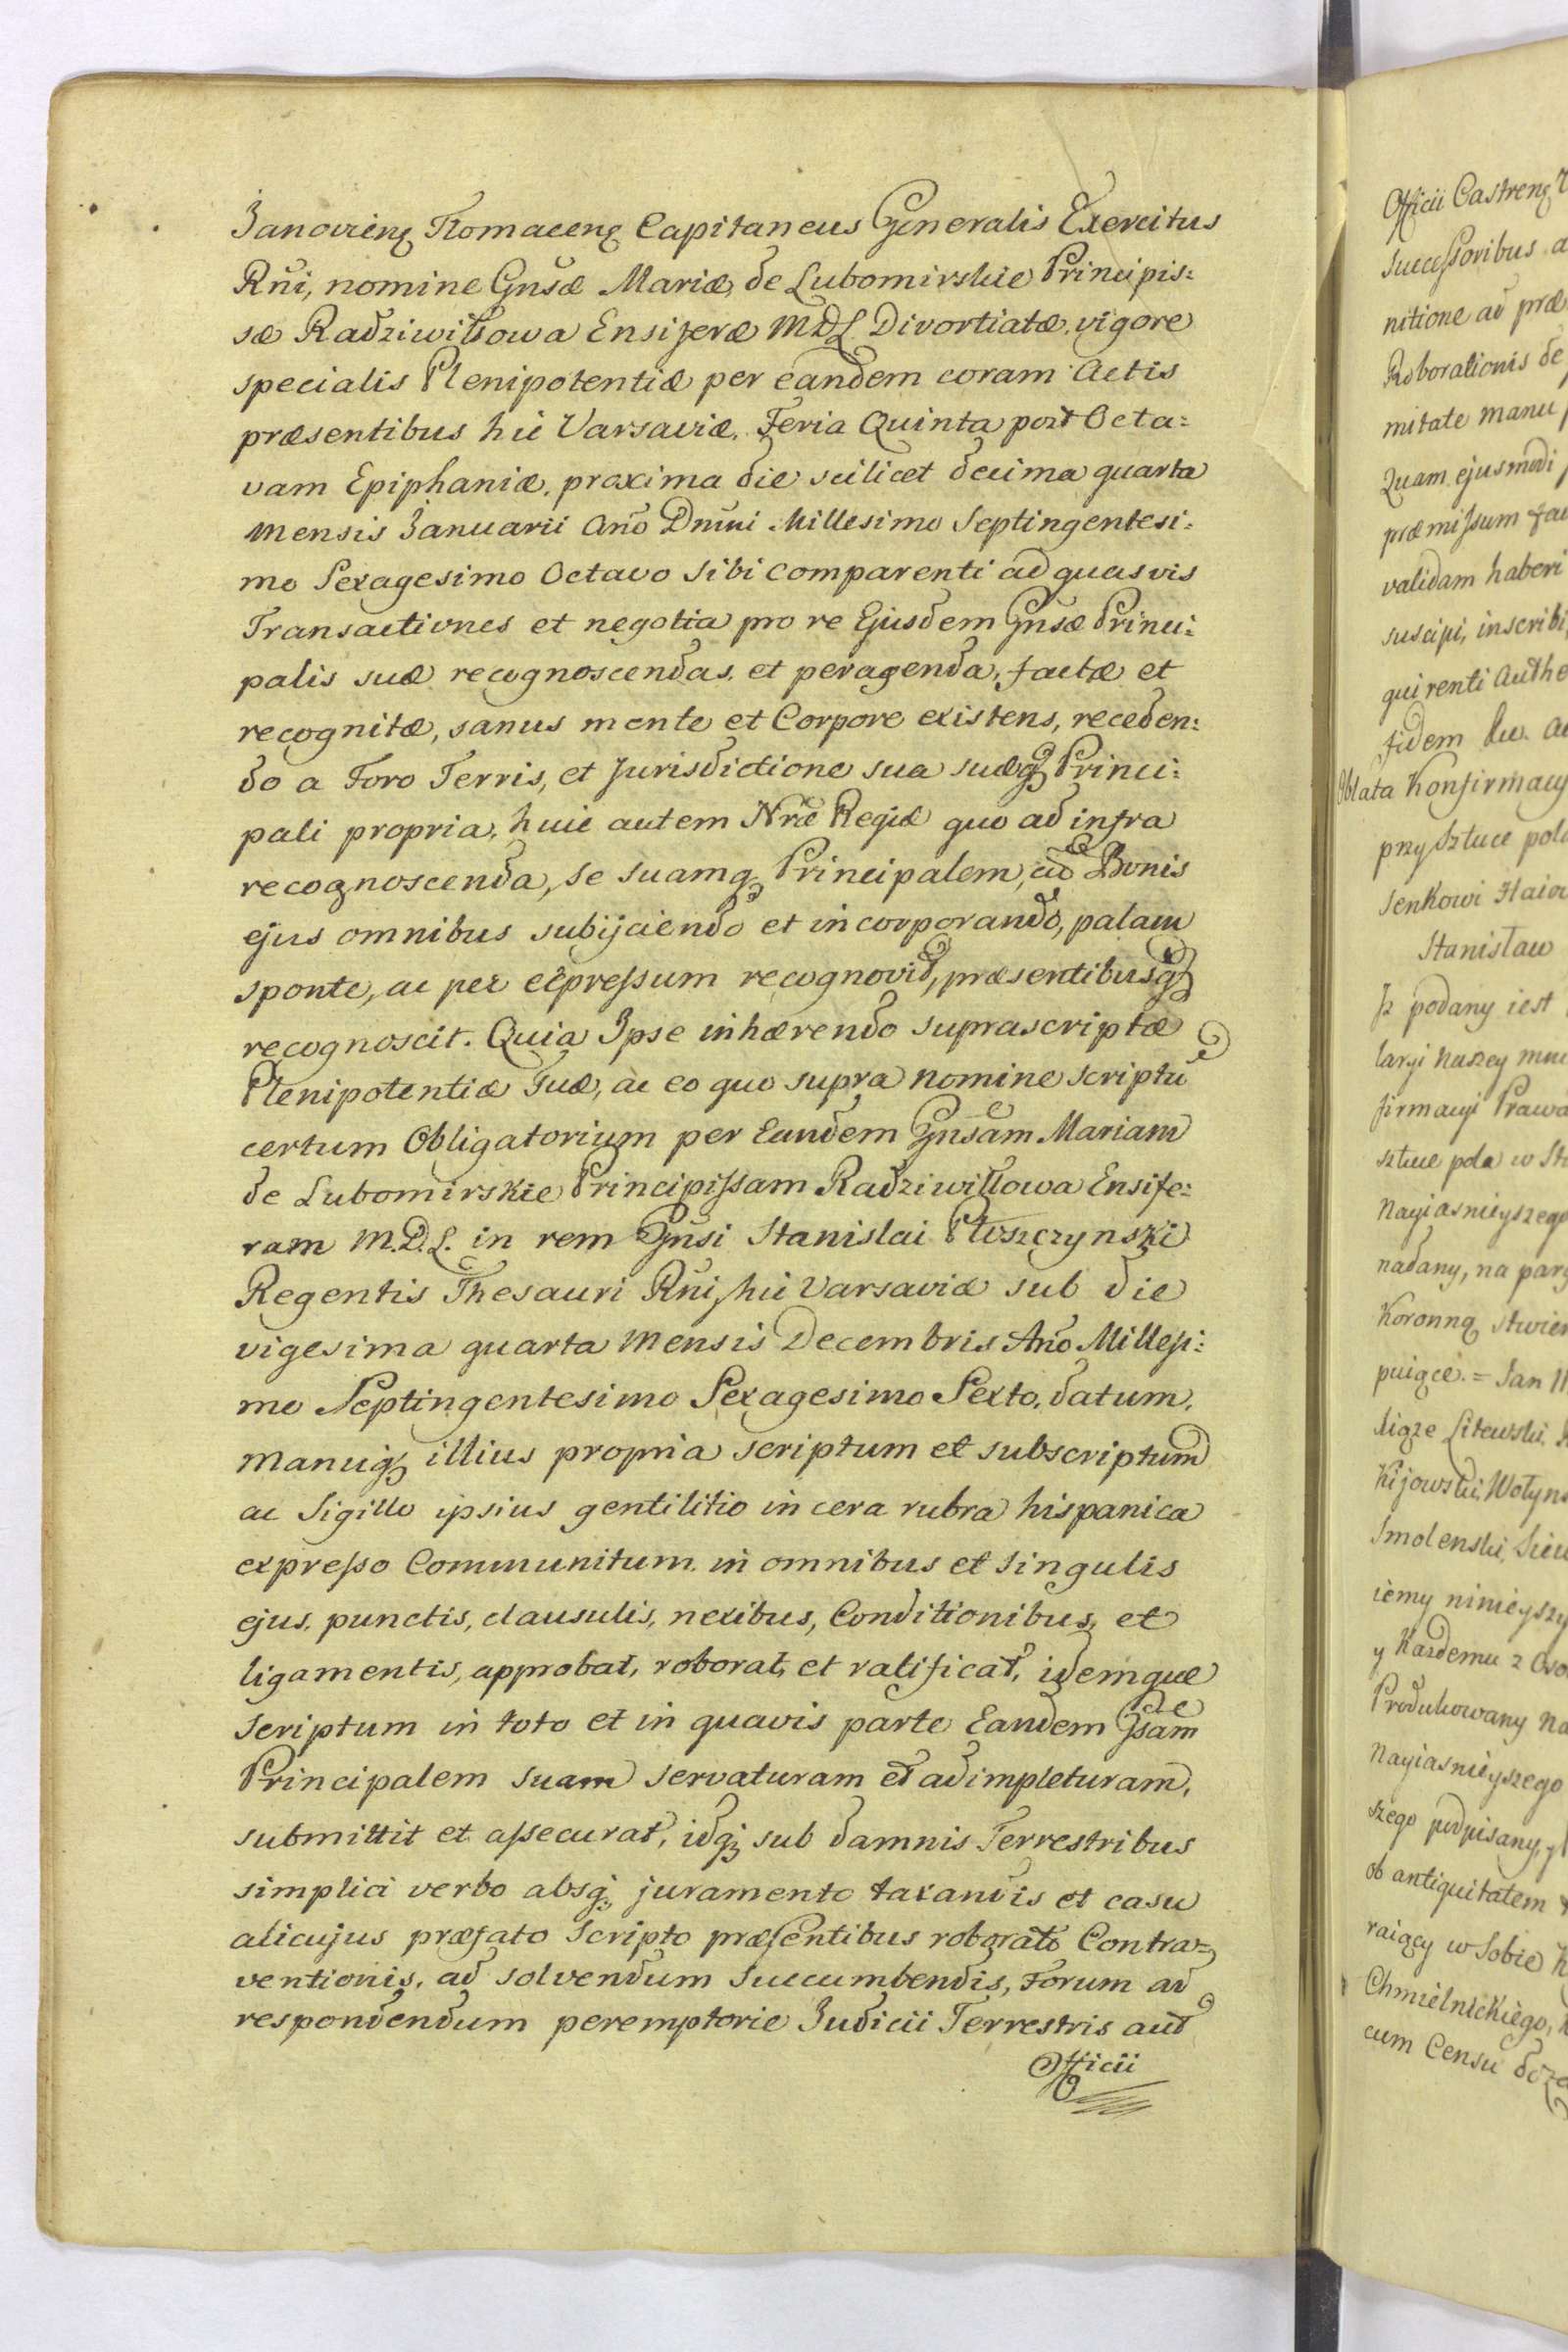 Janovien̄ Tlomacen̄ Capitaneus Generalis Exercitus
Rñi, nomine Gnsæ Mariæ de Lubomirskie Principis:
sæ Radziwiłłowa Ensiferæ MDL Divortiatæ, vigore
specialis Plenipotentiæ per eandem coram Actis
præsentibus hic Varsaviæ, Feria Quinta post Octa:
vam Epiphaniæ, proxima die scilicet decima quarta
mensis Januarii Año Dnni Millesimo Septingentesi:
mo Sexagesimo Octavo sibi comparenti ad quasvis
Transactiones et negotia pro re Ejusdem Gnsæ Princi:
palis suæ recognoscendas, et peragenda, factæ et
recognitæ, sanus mente et Corpore existens, receden:
do a Foro Terris, et Jurisdictione sua suæq; Princi:
pali propria, huic autem Nræ Regiæ quo ad infra
recognoscenda, se suamq; Principalem, cũ Bonis
ejus omnibus subijciendo et incorporando, palam
sponte, ac per expressum recognovit, præsentibusq;
recognoscit. Quia Ipse inhærendo suprascriptæ
Plenipotentiæ suæ, ac eo quo supra nomine scriptũ
certum Obligatorium per Eandem Gnsam Mariam
de Lubomirskie Principissam Radziwiłłowa Ensife:
ram M.D.L. in rem Gnsi Stanislai Płoszczynski
Regentis Thesauri Rñi, hic Varsaviæ sub die
vigesima quarta mensis Decembris Año Millesi:
mo Septingentesimo Sexagesimo Sexto, datum,
manuq; illius propria scriptum et subscriptum
ac Sigillo ipsius gentilitio in cera rubra hispanica
expresso Communitum, in omnibus et singulis
ejus, punctis, clausulis, nexibus, Conditionibus, et
ligamentis, approbat, roborat, et ratificat, idemque
scriptum in toto et in quavis parte Eandem Gnsam
Principalem suam servaturam et adimpleturam,
submittit et assecurat, idq; sub damnis Terrestribus
simplici verbo absq; juramento taxandis et casu
alicujus præfato Scripto præsentibus roborato Contra:
ventionis, ad solvendum succumbendis, Forum ad
respondendum peremptorie Judicii Terrestris aut
Officii
Officii Castren̄
successoribus a
nitione ad præ
Roborationis de
mitate manu
Quam ejusmodi
præmissum fa
validam haberi
suscipi, inscribi
quirenti Authe
fidem
Oblata Konfirmacy
przy sztuce pol
Senkowi
Stanisław
Iz podany iest
laryi naszey
firmacyi Prawa
sztuce pola w
Nayiasnieyszego
nadany, na parg
Koronną
= Jan
Litewski,
Kijowski, Wołyn
Smolenski,
iemy ninieyszy
y Kazdemu z Oso
Produkowany Na
Nayiasnieyszego
szego podpisany, y
ob antiquitatem
raiący w Sobie
Chmielnickiego,
cum Censu